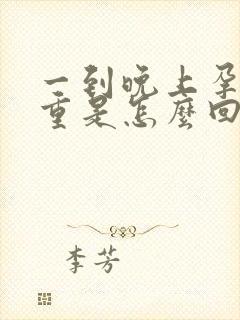 一到晚上孕
重是怎麼回
李芳